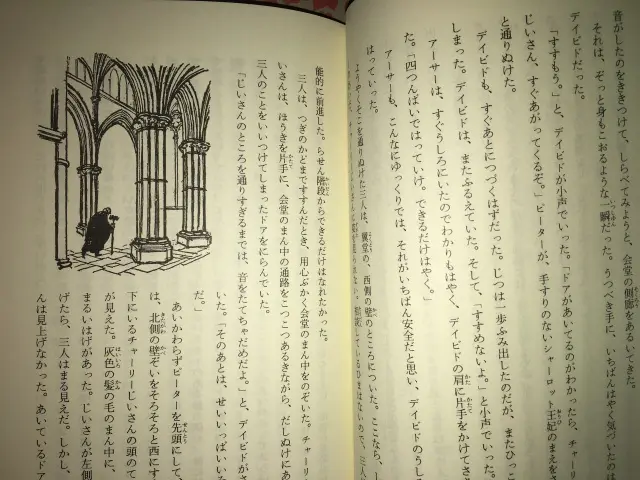 音がしたのをききつけて、しらべてみようと、会堂の側廊をあるいてきた。
それは、ぞっと身もこおるような一瞬だった。うつべき手に、いちばんはやく気づいたのは
デイビドだった。
「すすもう。」と、デイビドが小声でいった。「ドアがあいてるのがわかったら、チャーリー
じいさん、すぐあがってくるぞ。」ピーターが、手すりのないシャーロット王妃のまえをさ
と通りぬけた。
デイビドも、すぐあとにつづくはずだった。じつは一歩ふみ出したのだが、またひっこ
しまった。デイビドは、またふるえていた。そして、「すすめないよ。」と小声でいった。
アーサーは、すぐうしろにいたのでわかりもはやく、デイビドの肩に片手をかけてささ
た。「四つんばいではっていけ。できるだけはやく。」
アーサーも、こんなにゆっくりでは、それがいちばん安全だと思い、デイビドのうし
はっていった。
ようやくそこを通りぬけた三人は、翼堂の、西側の壁のところについた。ここなら、
能的に前進した。らせん階段からできるだけはなれたかった。
三人は、つぎのかどまですすんだとき、用心ぶかく会堂のまん中をのぞいた。チャーリ
いさんは、ほうきを片手に、会堂のまん中の通路をこつこつあるきながら、だしぬけにあ
三人のことをいいつけてしまったドアをにらんでいた。
「じいさんのところを通りすぎるまでは、音をたてちゃだめだよ。」と、デイビドがさ
いた。「そのあとは、せいいっぱいいそ
だ。」
あいかわらずピーターを先頭にして、
は、北側の壁ぞいをそろそろと西にす
下にいるチャーリーじいさんの頭のて
が見えた。灰色の髪の毛のまん中に、
まるいはげがあった。じいさんが左側
げたら、三人はまる見えだ。しかし、
んは見上げなかった。あいているドア